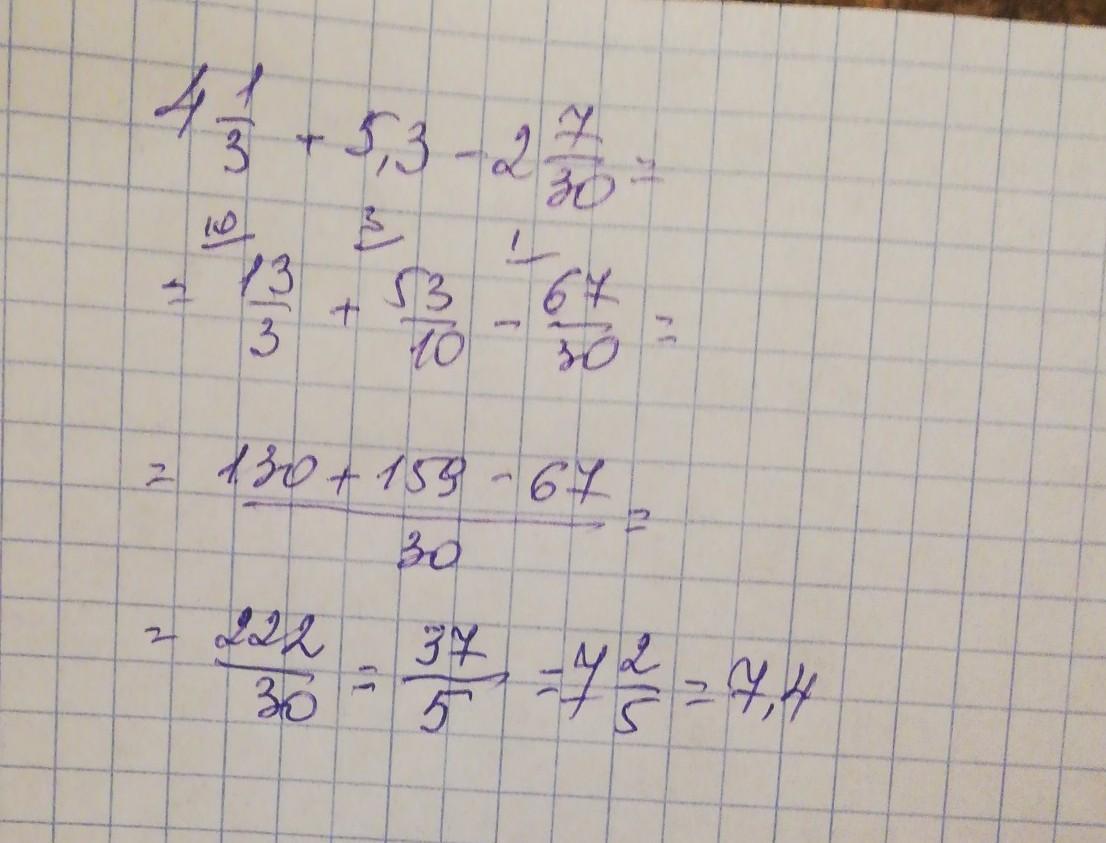 4 1/3 + 5,3 - 2 7/30 =
10 3 1
= 13/3 + 53/10 - 67/30 =
= (130 + 159 - 67)/30 =
= 222/30 = 37/5 = 7 2/5 = 7,4